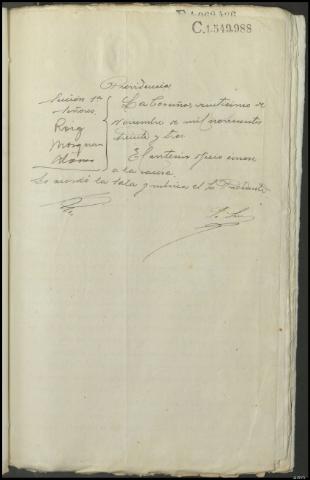 C.1.549.988
Providencia
Sección 1ª
Señores
Roig
Mosquera
Alonso
La Coruña veinticinco de
Noviembre de mil novecientos
treinta y tres.
El anterior oficio únase
a la causa.
Lo acordó la Sala y rubrica el Sr. Presidente